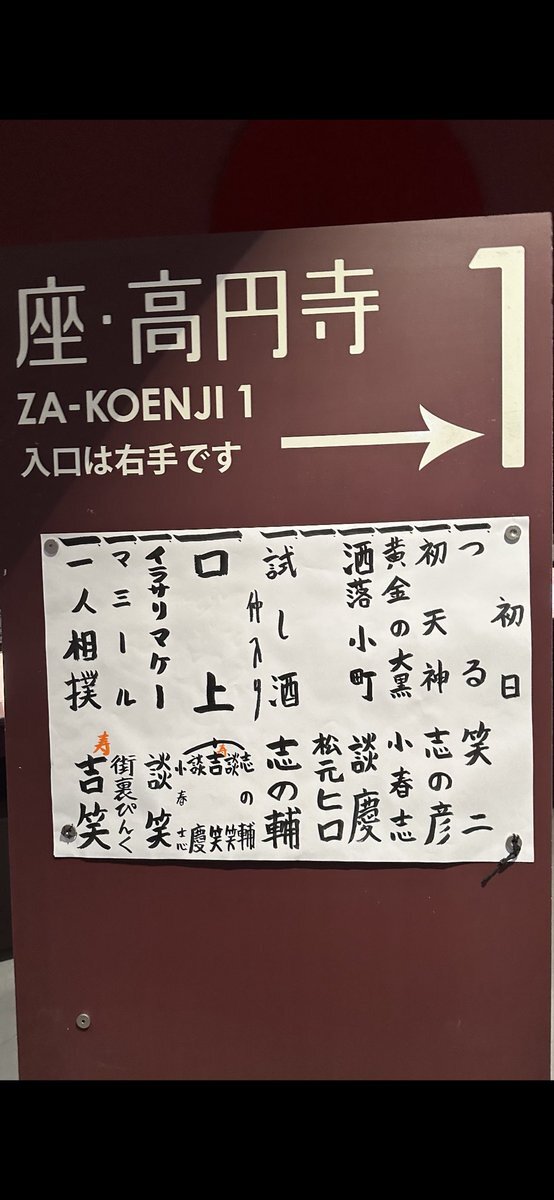 座・高円寺
1
ZA-KOENJI 1
入口は右手です
初日
一 つる 笑二
一 初天神 志の彦
一 黄金の大黒 小春志
一 洒落小町 談慶
一 松元ヒロ
一 試し酒 志の輔
仲入り
一 口上 志の輔 談笑 寿 吉笑 談慶 小春志
一 イラサリマケー 談笑
一 マミール 街裏ぴんく
一 一人相撲 寿 吉笑